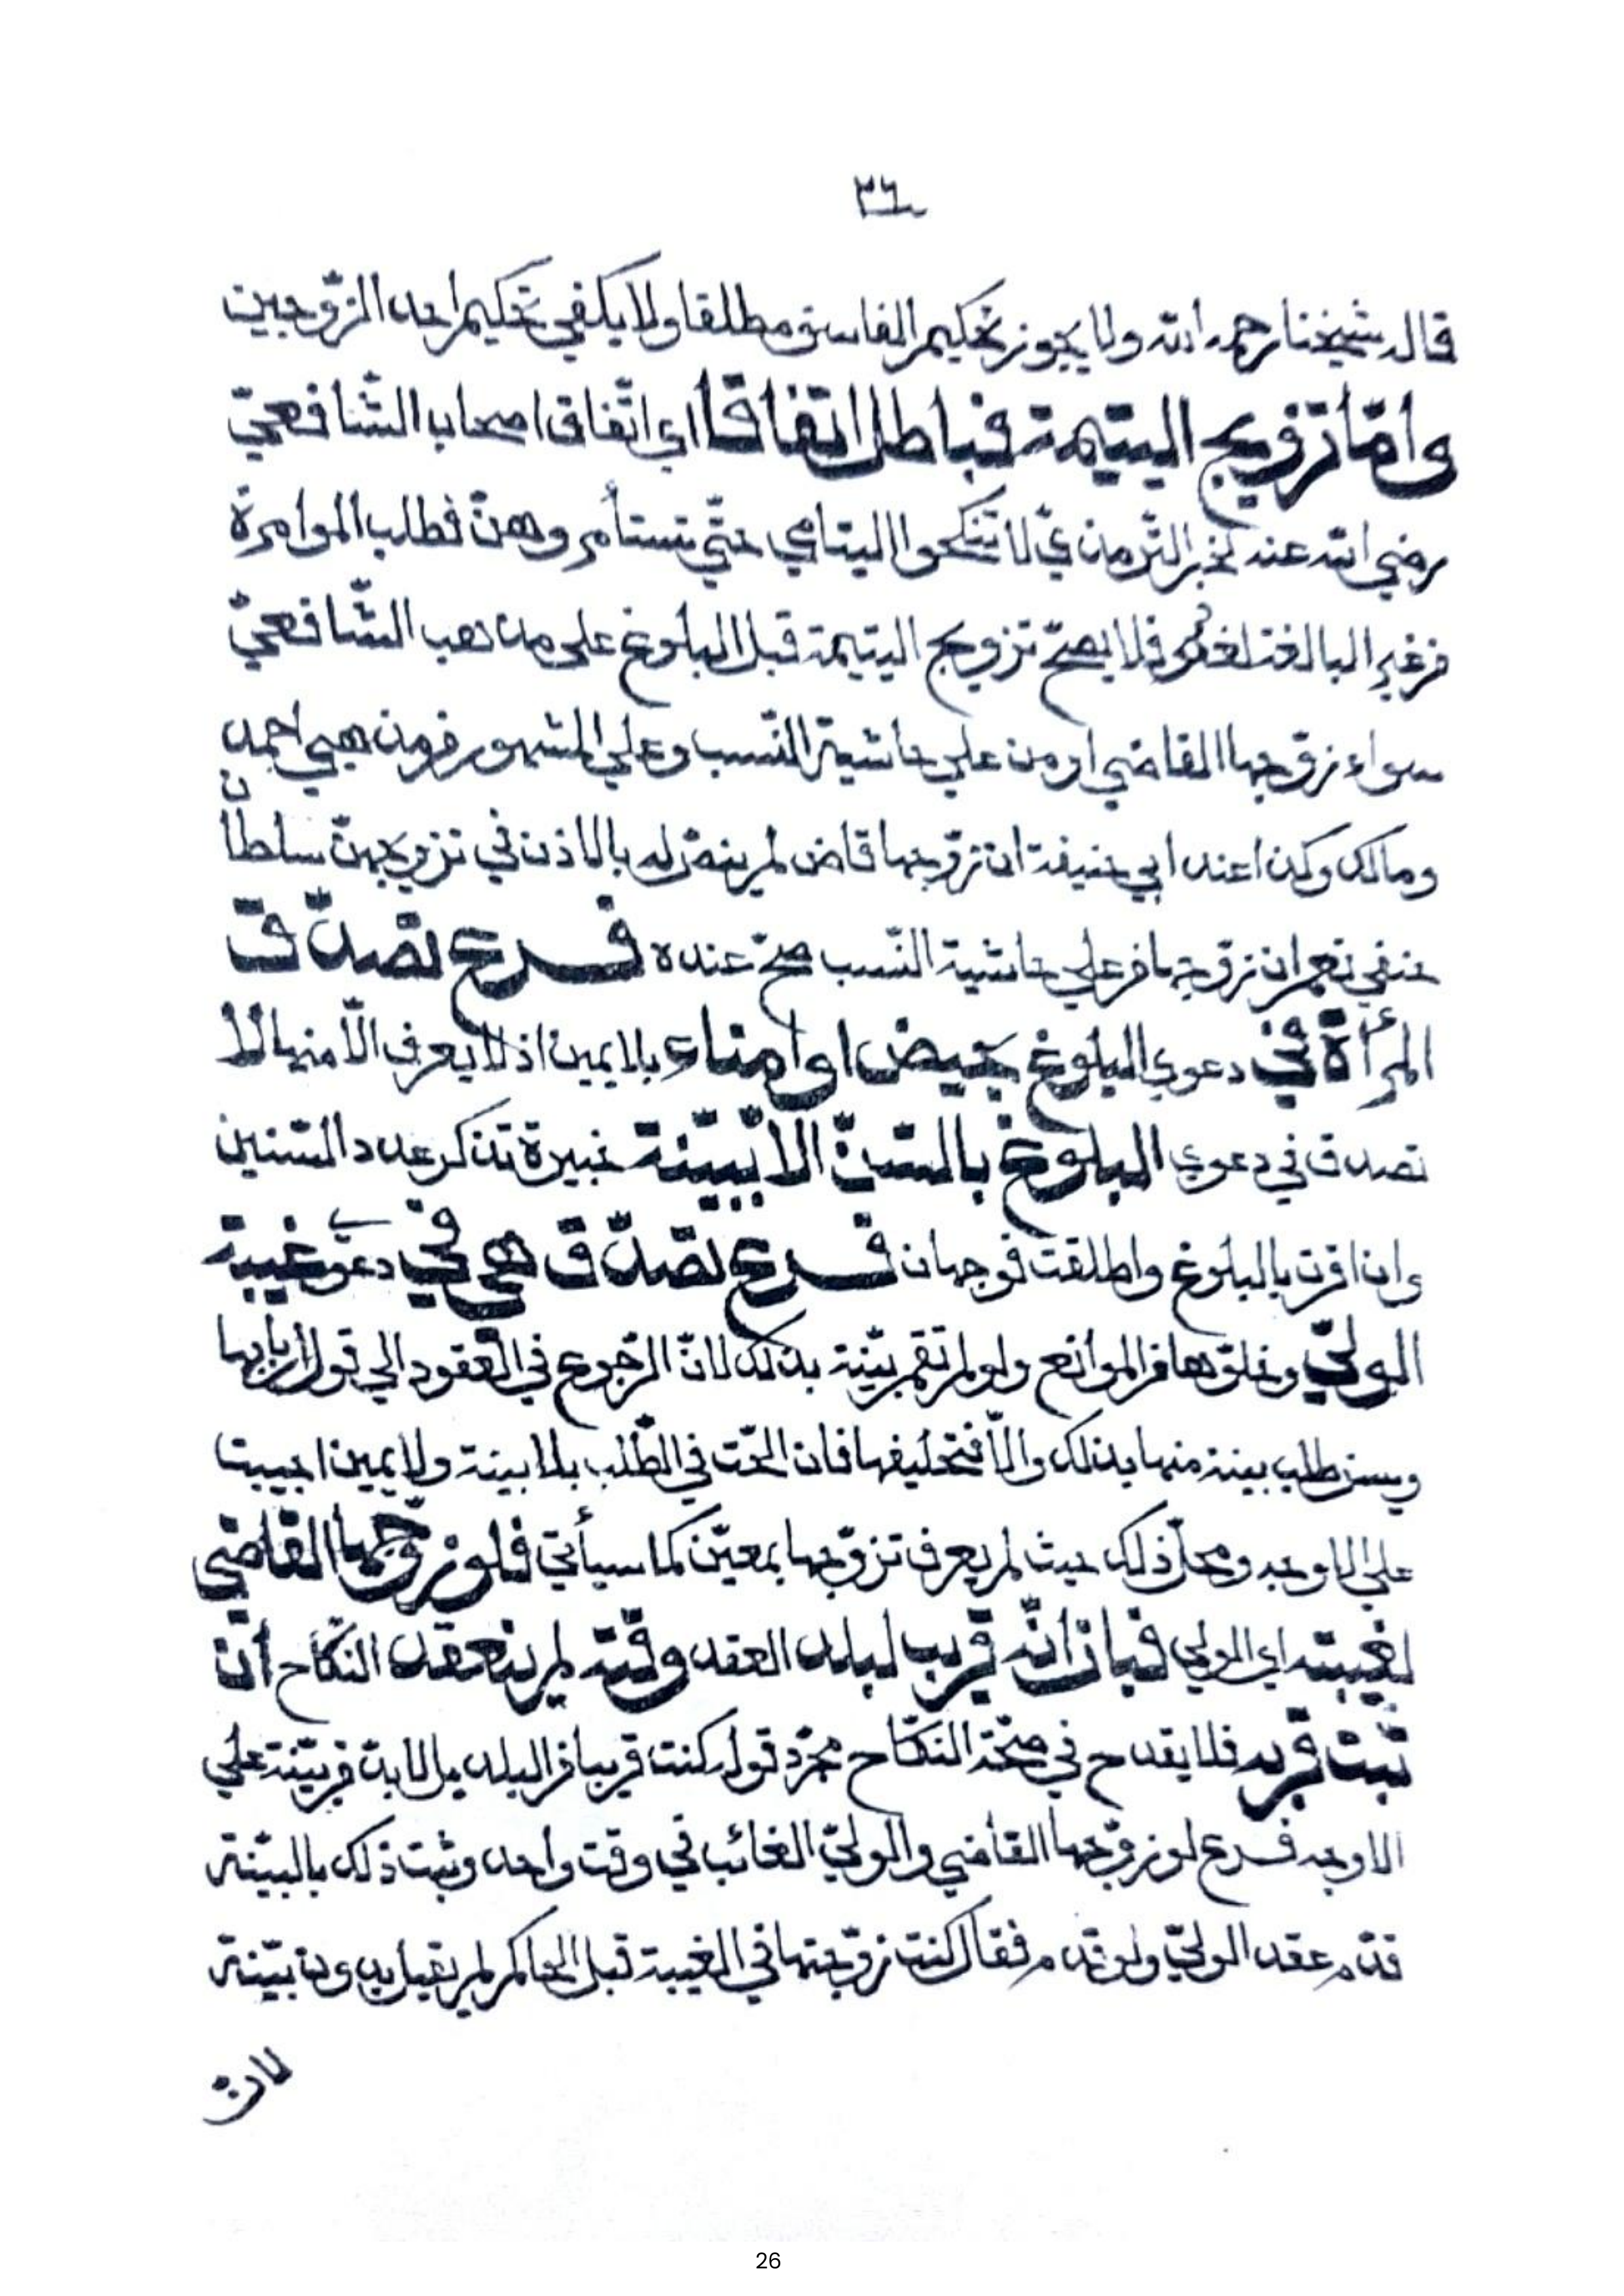 ٣٦
قال شيخنا رحمه الله ولا يجوز تحكيم الفاسق مطلقا ولا يكفي تحكيم احد الزّوجين
وامّا تزويج اليتيمة فباطل اتفاقا اي اتّفاق اصحاب الشّافعيّ
رضي الله عنه لخبر التّرمذيّ لا تنكحوا اليتامي حتّي تستأمروهنّ فطلب الموامرة
من غير البالغة لغو فلا يصحّ تزويج اليتيمة قبل البلوغ علي مذهب الشّافعيّ
سواء زوّجها القاضي او من علي حاشية النّسب وعلي المشهور من مذهبي احمد
ومالك وكذا عند ابي حنيفة ان تزوّجها قاض لم ينصّ له بالاذن في تزويجهنّ سلطان
حنفي نعم ان زوّجها من علي حاشية النّسب صحّ عنده فرع تصدّق
المرأة في دعوي البلوغ بحيض او امناء بلا يمين اذ لا يعرف الّا منها لا
تصدق في دعوي البلوغ بالسّنّ الا ببيّنة خبيرة تذكر عدد السّنين
وان اقرت بالبلوغ واطلقت فوجهان فرع تصدّق هي في دعوي غيبة
الوليّ وخلوّها من الموانع ولو لم تقم بيّنة بذلك لانّ الرّجوع في العقود الي قول اربابها
ويسن طلب بينة منها بذلك والّا فتحليفها فان الحّت في الطّلب بلا بينة ولا يمين اجيبت
علي الاوجه ومحلّ ذلك حيث لم يعرف تزوّجها بمعيّن كما سيأتي فلو زوّجها القاضي
لغيبته اي الولي فبان انّه قريب لبلد العقد وقته لم ينعقد النكاح ان
ثبت قربه فلا يقدح في صحّة النكّاح مجرّد قوله كنت قريبا من البلد بل لا بدّ من بيّنة علي
الاوجه فرع لو زوّجها القاضي والوليّ الغائب في وقت واحد وثبت ذلك بالبيّنة
قدّم عقد الوليّ ولو قدم فقال كنت زوّجتها في الغيبة قبل الحاكم لم يقبل بدون بيّنة
لان
26